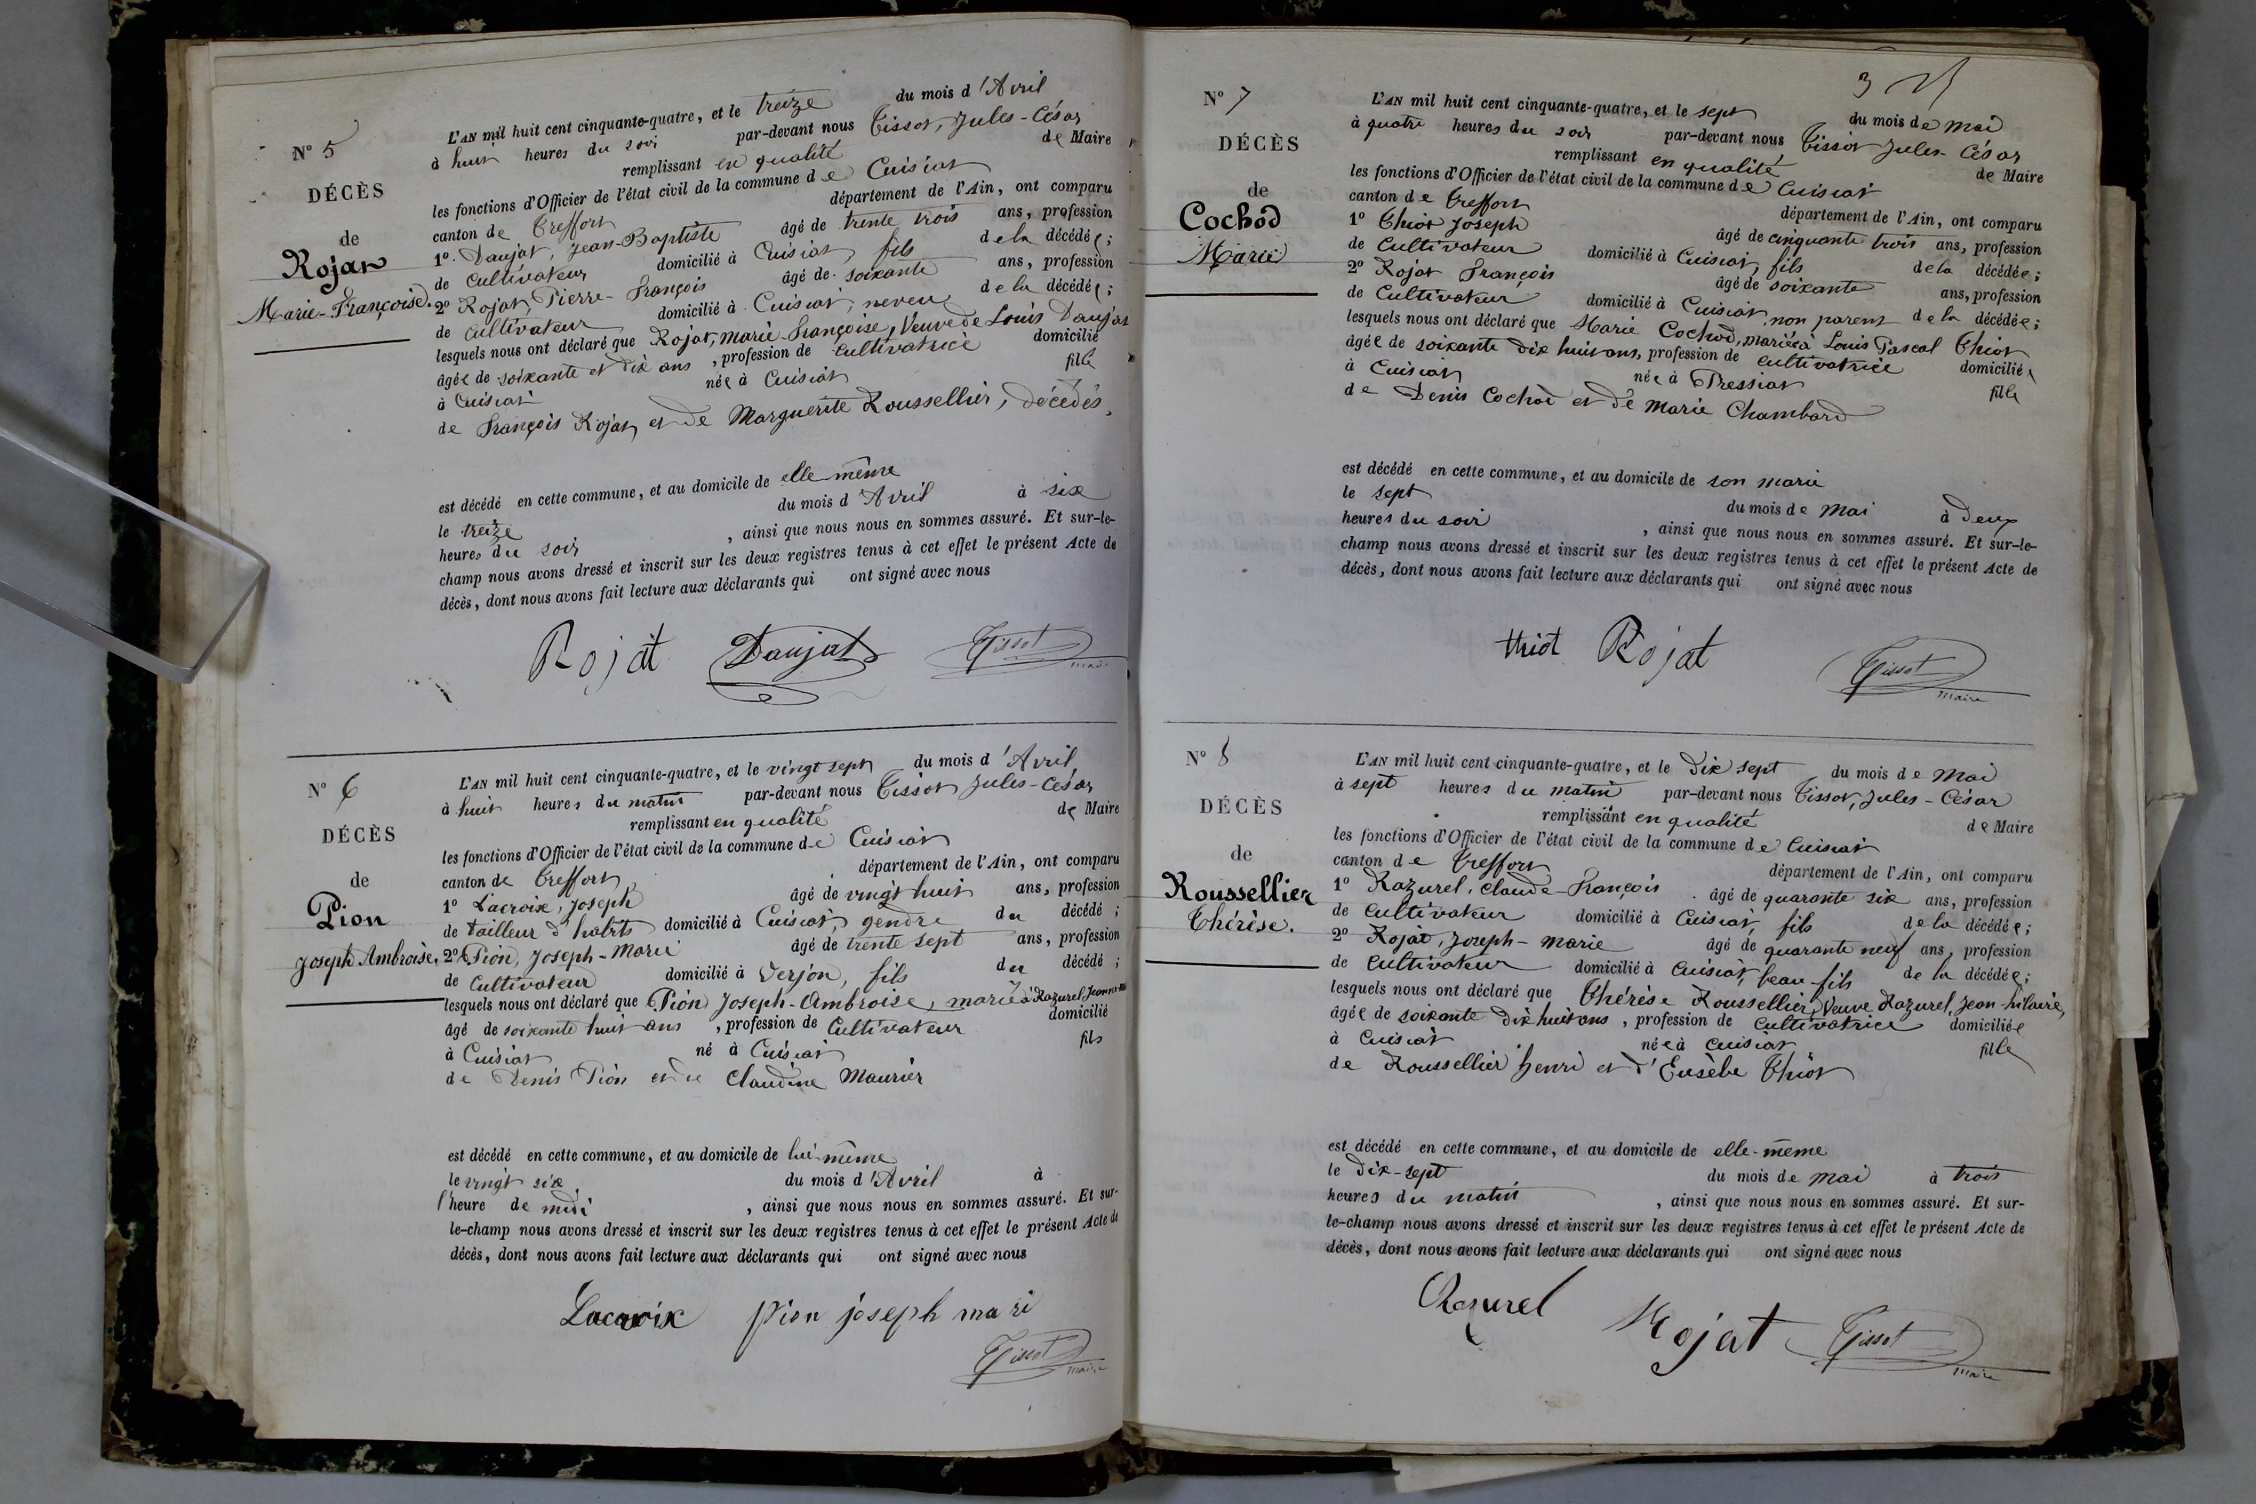 N° 5
DÉCÈS
de
Rojat
Marie-Françoise.
L'AN mil huit cent cinquante-quatre, et le treize du mois d'Avril
à huit heures du soir par-devant nous Tissot, Jules-César
remplissant en qualité de Maire
les fonctions d'Officier de l'état civil de la commune de Cuisiat
canton de Treffort département de l'Ain, ont comparu
1° Daujat, Jean-Baptiste âgé de trente trois ans, profession
de cultivateur domicilié à Cuisiat, fils de la décédée;
2° Rojat, Pierre-François âgé de soixante ans, profession
de cultivateur domicilié à Cuisiat, neveu de la décédée;
lesquels nous ont déclaré que Rojat, Marie-Françoise, Veuve de Louis Daujat
âgée de soixante et dix ans, profession de cultivatrice domicilié
à Cuisiat née à Cuisiat fille
de François Rojat et de Marguerite Roussellier, décédés.
est décédé en cette commune, et au domicile de elle même
le treize du mois d'Avril à six
heures du soir, ainsi que nous nous en sommes assuré. Et sur-le-
champ nous avons dressé et inscrit sur les deux registres tenus à cet effet le présent Acte de
décès, dont nous avons fait lecture aux déclarants qui ont signé avec nous
Rojat Daujat Tissot
maire
N° 6
DÉCÈS
de
Pion
Joseph Ambroise.
L'AN mil huit cent cinquante-quatre, et le vingt sept du mois d'Avril
à huit heures du matin par-devant nous Tissot Jules-César
remplissant en qualité de Maire
les fonctions d'Officier de l'état civil de la commune de Cuisiat
canton de Treffort département de l'Ain, ont comparu
1° Lacroix, Joseph âgé de vingt huit ans, profession
de tailleur d'habits domicilié à Cuisiat, gendre du décédé;
2° Pion, Joseph-Marie âgé de trente sept ans, profession
de cultivateur domicilié à Verjon, fils du décédé;
lesquels nous ont déclaré que Pion Joseph-Ambroise, marié à Razurel
âgé de soixante huit ans, profession de Cultivateur domicilié
à Cuisiat né à Cuisiat fils
de Denis Pion et de Claudine Maurier
est décédé en cette commune, et au domicile de lui-même
le vingt six du mois d'Avril à
l'heure de midi, ainsi que nous nous en sommes assuré. Et sur-
le-champ nous avons dressé et inscrit sur les deux registres tenus à cet effet le présent Acte de
décès, dont nous avons fait lecture aux déclarants qui ont signé avec nous
Lacroix Pion joseph mari
Tissot
maire
3
N° 7
DÉCÈS
de
Cochod
Marie
L'AN mil huit cent cinquante-quatre, et le sept du mois de Mai
à quatre heures du soir par-devant nous Tissot Jules-César
remplissant en qualité de Maire
les fonctions d'Officier de l'état civil de la commune de Cuisiat
canton de Treffort département de l'Ain, ont comparu
1° Thiot Joseph âgé de cinquante trois ans, profession
de Cultivateur domicilié à Cuisiat, fils de la décédée;
2° Rojat François âgé de soixante ans, profession
de Cultivateur domicilié à Cuisiat, non parent de la décédée;
lesquels nous ont déclaré que Marie Cochod, mariée à Louis Pascal Thiot
âgée de soixante dix huit ans, profession de cultivatrice domiciliée
à Cuisiat née à Pressiat fille
de Denis Cochod et de Marie Chambard
est décédé en cette commune, et au domicile de son marie
le sept du mois de Mai à Deux
heures du soir, ainsi que nous nous en sommes assuré. Et sur-le-
champ nous avons dressé et inscrit sur les deux registres tenus à cet effet le présent Acte de
décès, dont nous avons fait lecture aux déclarants qui ont signé avec nous
thiot Rojat Tissot
maire
N° 8
DÉCÈS
de
Roussellier
Thérèse.
L'AN mil huit cent cinquante-quatre, et le Dix sept du mois de Mai
à sept heures du matin par-devant nous Tissot, Jules-César
remplissant en qualité de Maire
les fonctions d'Officier de l'état civil de la commune de Cuisiat
canton de Treffort département de l'Ain, ont comparu
1° Razurel, Claude-François âgé de quarante six ans, profession
de Cultivateur domicilié à Cuisiat, fils de la décédée;
2° Rojat, Joseph-Marie âgé de quarante neuf ans, profession
de Cultivateur domicilié à Cuisiat, beau fils de la décédée;
lesquels nous ont déclaré que Thérèse Roussellier, Veuve Razurel, Jean-hilaire,
âgée de soixante Dix huit ans, profession de cultivatrice domiciliée
à Cuisiat née à Cuisiat fille
de Roussellier henri et d'Eusèbe Thiot
est décédé en cette commune, et au domicile de elle-même
le Dix-sept du mois de Mai à trois
heures du matin, ainsi que nous nous en sommes assuré. Et sur-
le-champ nous avons dressé et inscrit sur les deux registres tenus à cet effet le présent Acte de
décès, dont nous avons fait lecture aux déclarants qui ont signé avec nous
Razurel Rojat Tissot
maire